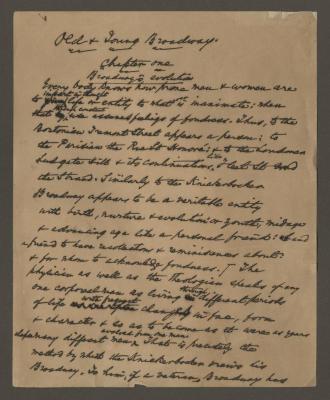 Old & Young Broadway.
Chapter one
Broadway's evolution
Every body knows how prone men & women are
impart in thought
to life or entity to what is inanimate; when
that has assured feelings of fondness. Thus, to the
Bostonian Tremont Street appears a person; to
the Parisian the Rue St Honoré; & to the Londoner
Ludgate Hill & its continuations, Fleet St and
the Strand. Similarly to the Knickerbocker
Broadway appears to be a veritable entity
with birth, nurture & evolution or youth, mid age
& advancing age like a personal friend:
a friend to have recollection & reminiscences about;
& for whom to acknowledge fondness. The
physician as well as the Theologian speaks of any
one corporeal man as living through different periods
of life with frequent changes in face, form
& character & so as to become as it were as years
different men. That is precisely the
method by which the Knickerbocker views his
Broadway. To him, if a veteran, Broadway has